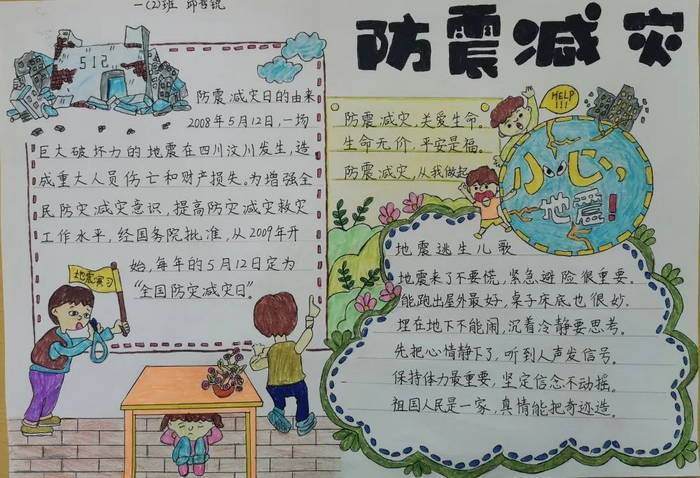 一(2)班
防震减灾
512
防震减灾日的由来
2008年5月12日,一场
巨大破坏力的地震在四川汶川发生,造
成重大人员伤亡和财产损失。为增强全
民防灾减灾意识,提高防灾减灾救灾
工作水平,经国务院批准,从2009年开
始,每年的5月12日定为
“全国防灾减灾日”。
地震演习
防震减灾,关爱生命。
生命无价,平安是福。
防震减灾,从我做起
HELP
!!!
小心,
地震!
地震逃生儿歌
地震来了不要慌,紧急避险很重要。
能跑出屋外最好,桌子床底也很妙.
埋在地下不能闹,沉着冷静要思考。
先把心情静下了,听到人声发信号。
保持体力最重要,坚定信念不动摇。
祖国人民是一家,真情能把奇迹造。